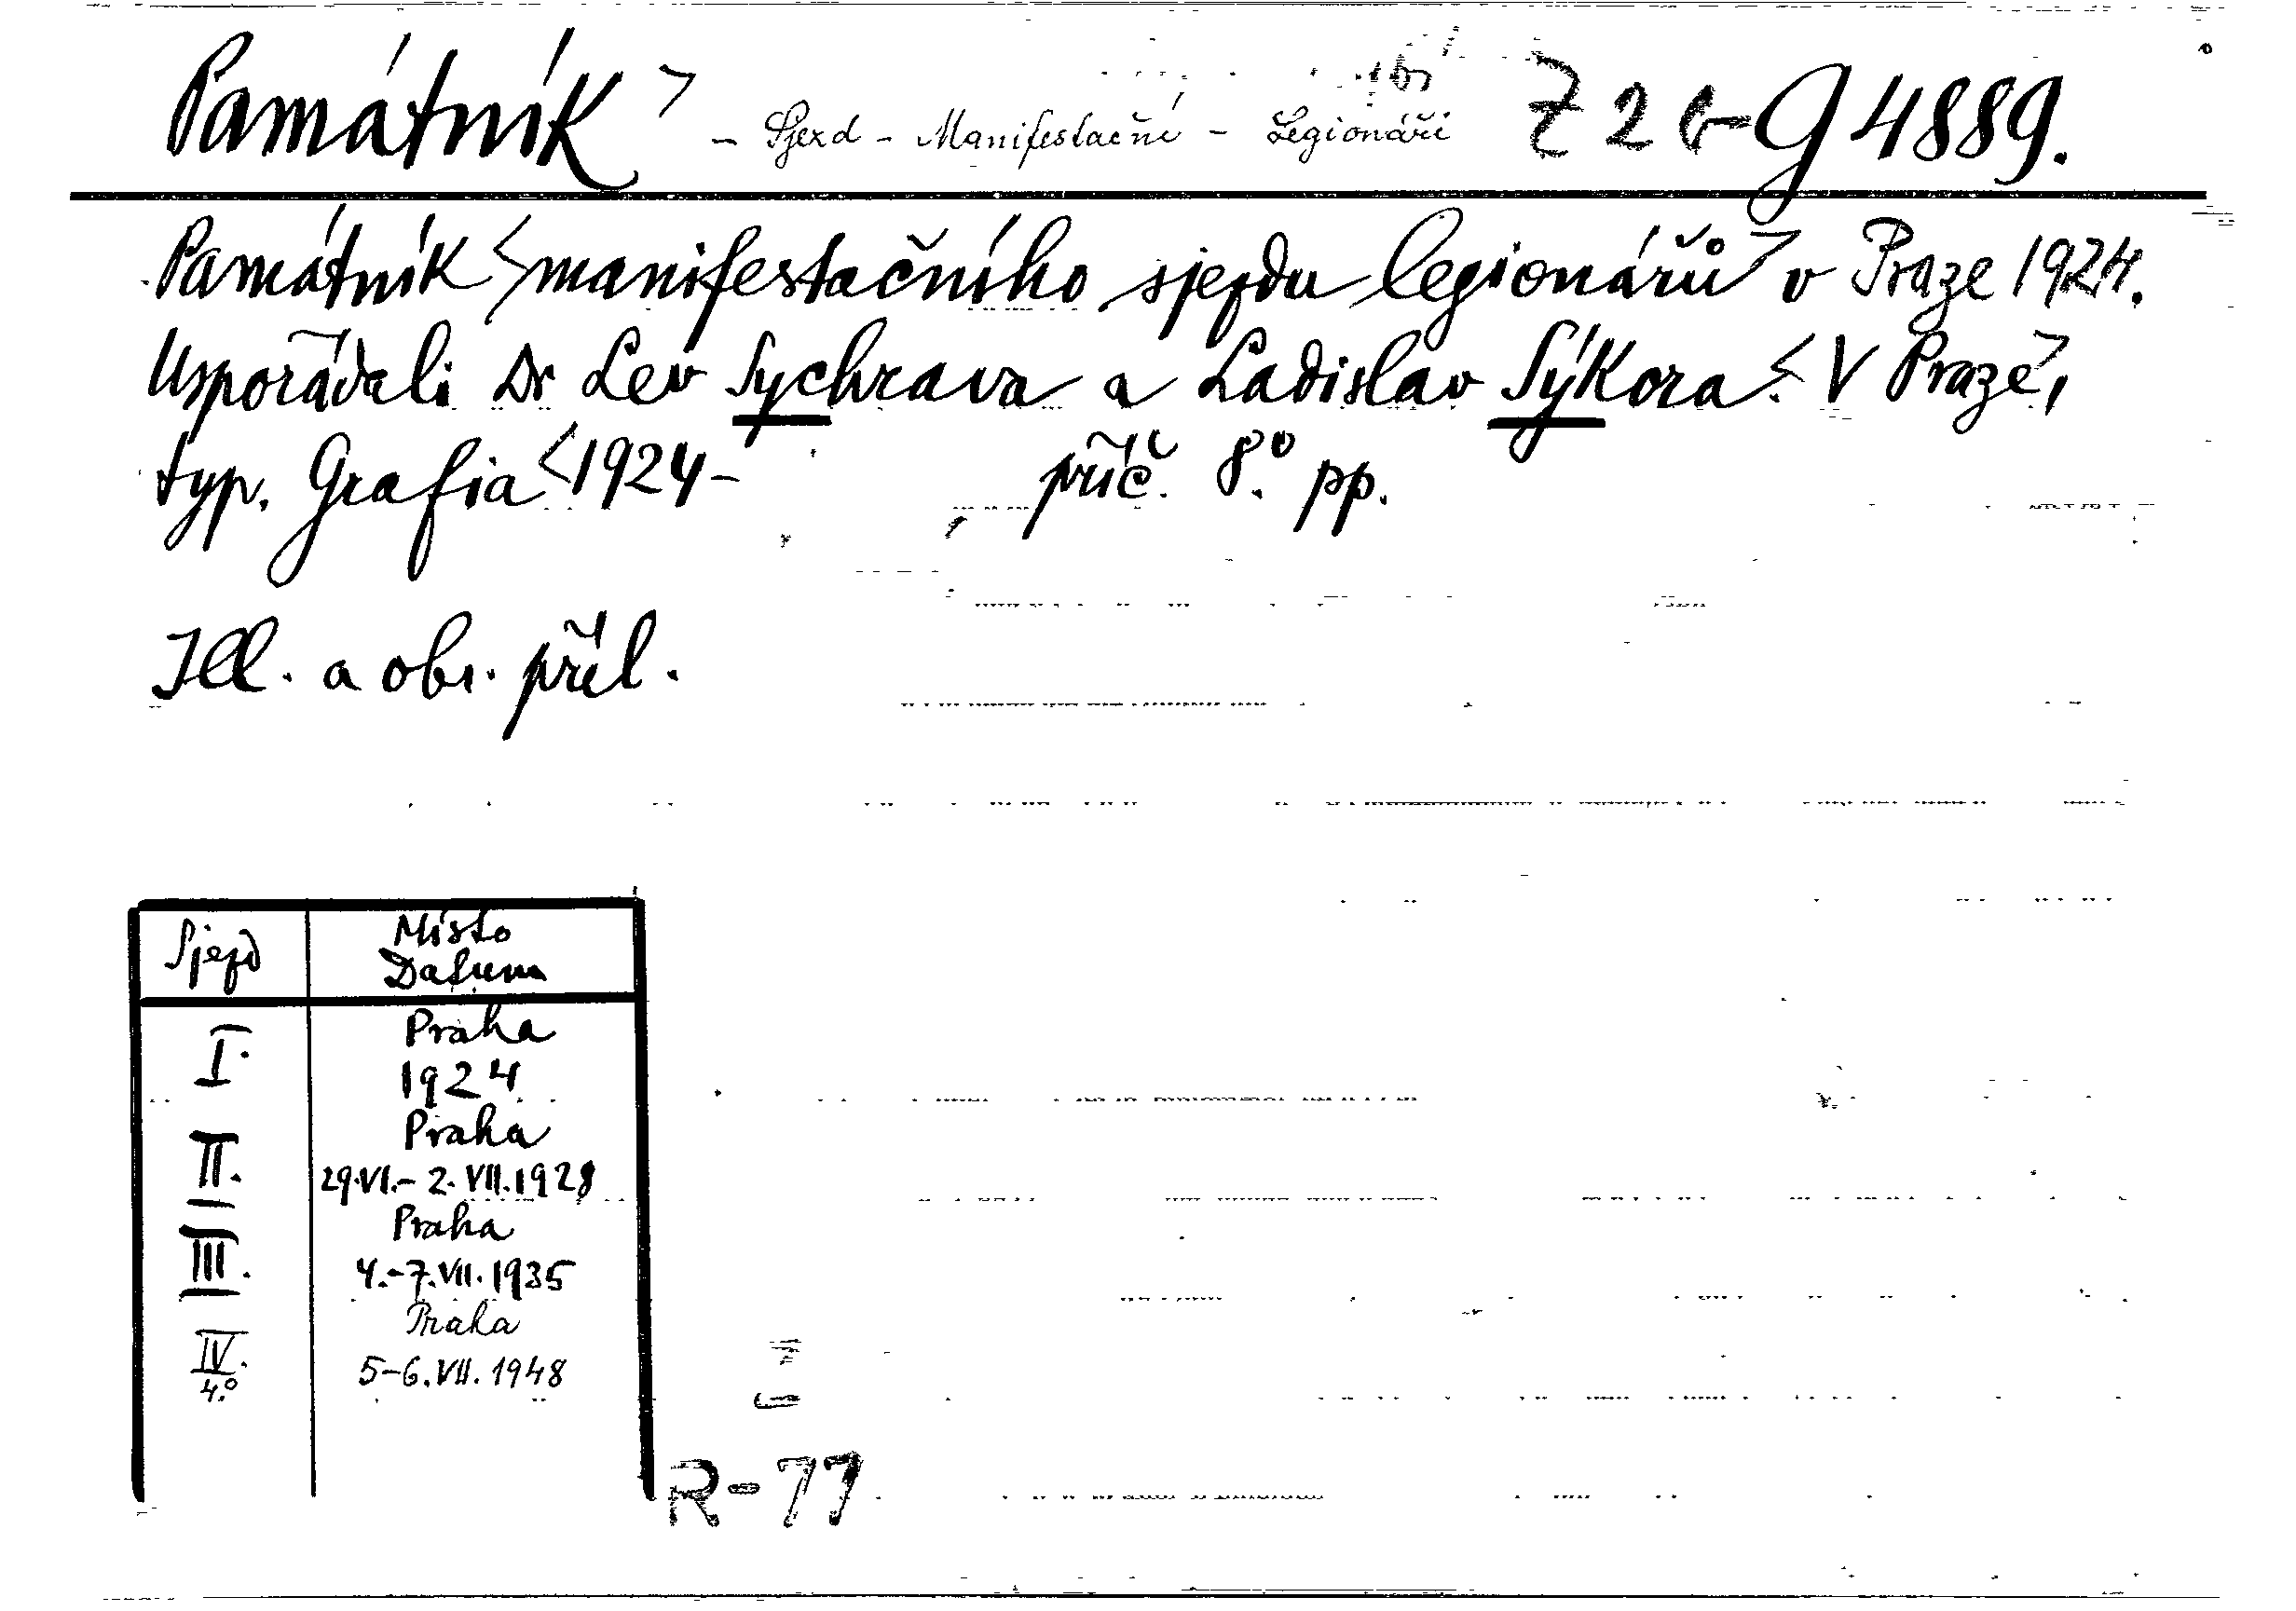 Památník > - Sjezd - Manifestační - Legionáři Z 2 G 4889.
Památník <manifestačního sjezdu legionářů> v Praze 1924.
Uspořádali Dr Lev Sychrava a Ladislav Sýkora. < V Praze>,
typ. Grafia < 1924 - příč. 8.° pp.
Ill. a obr. příl.
Sjezd Místo
Datum
I. Praha
1924
II. Praha
29.VI.- 2. VII. 1928
III. Praha
4.-7. VII. 1935
IV. Praha
4.° 5-6. VII. 1948
R-77